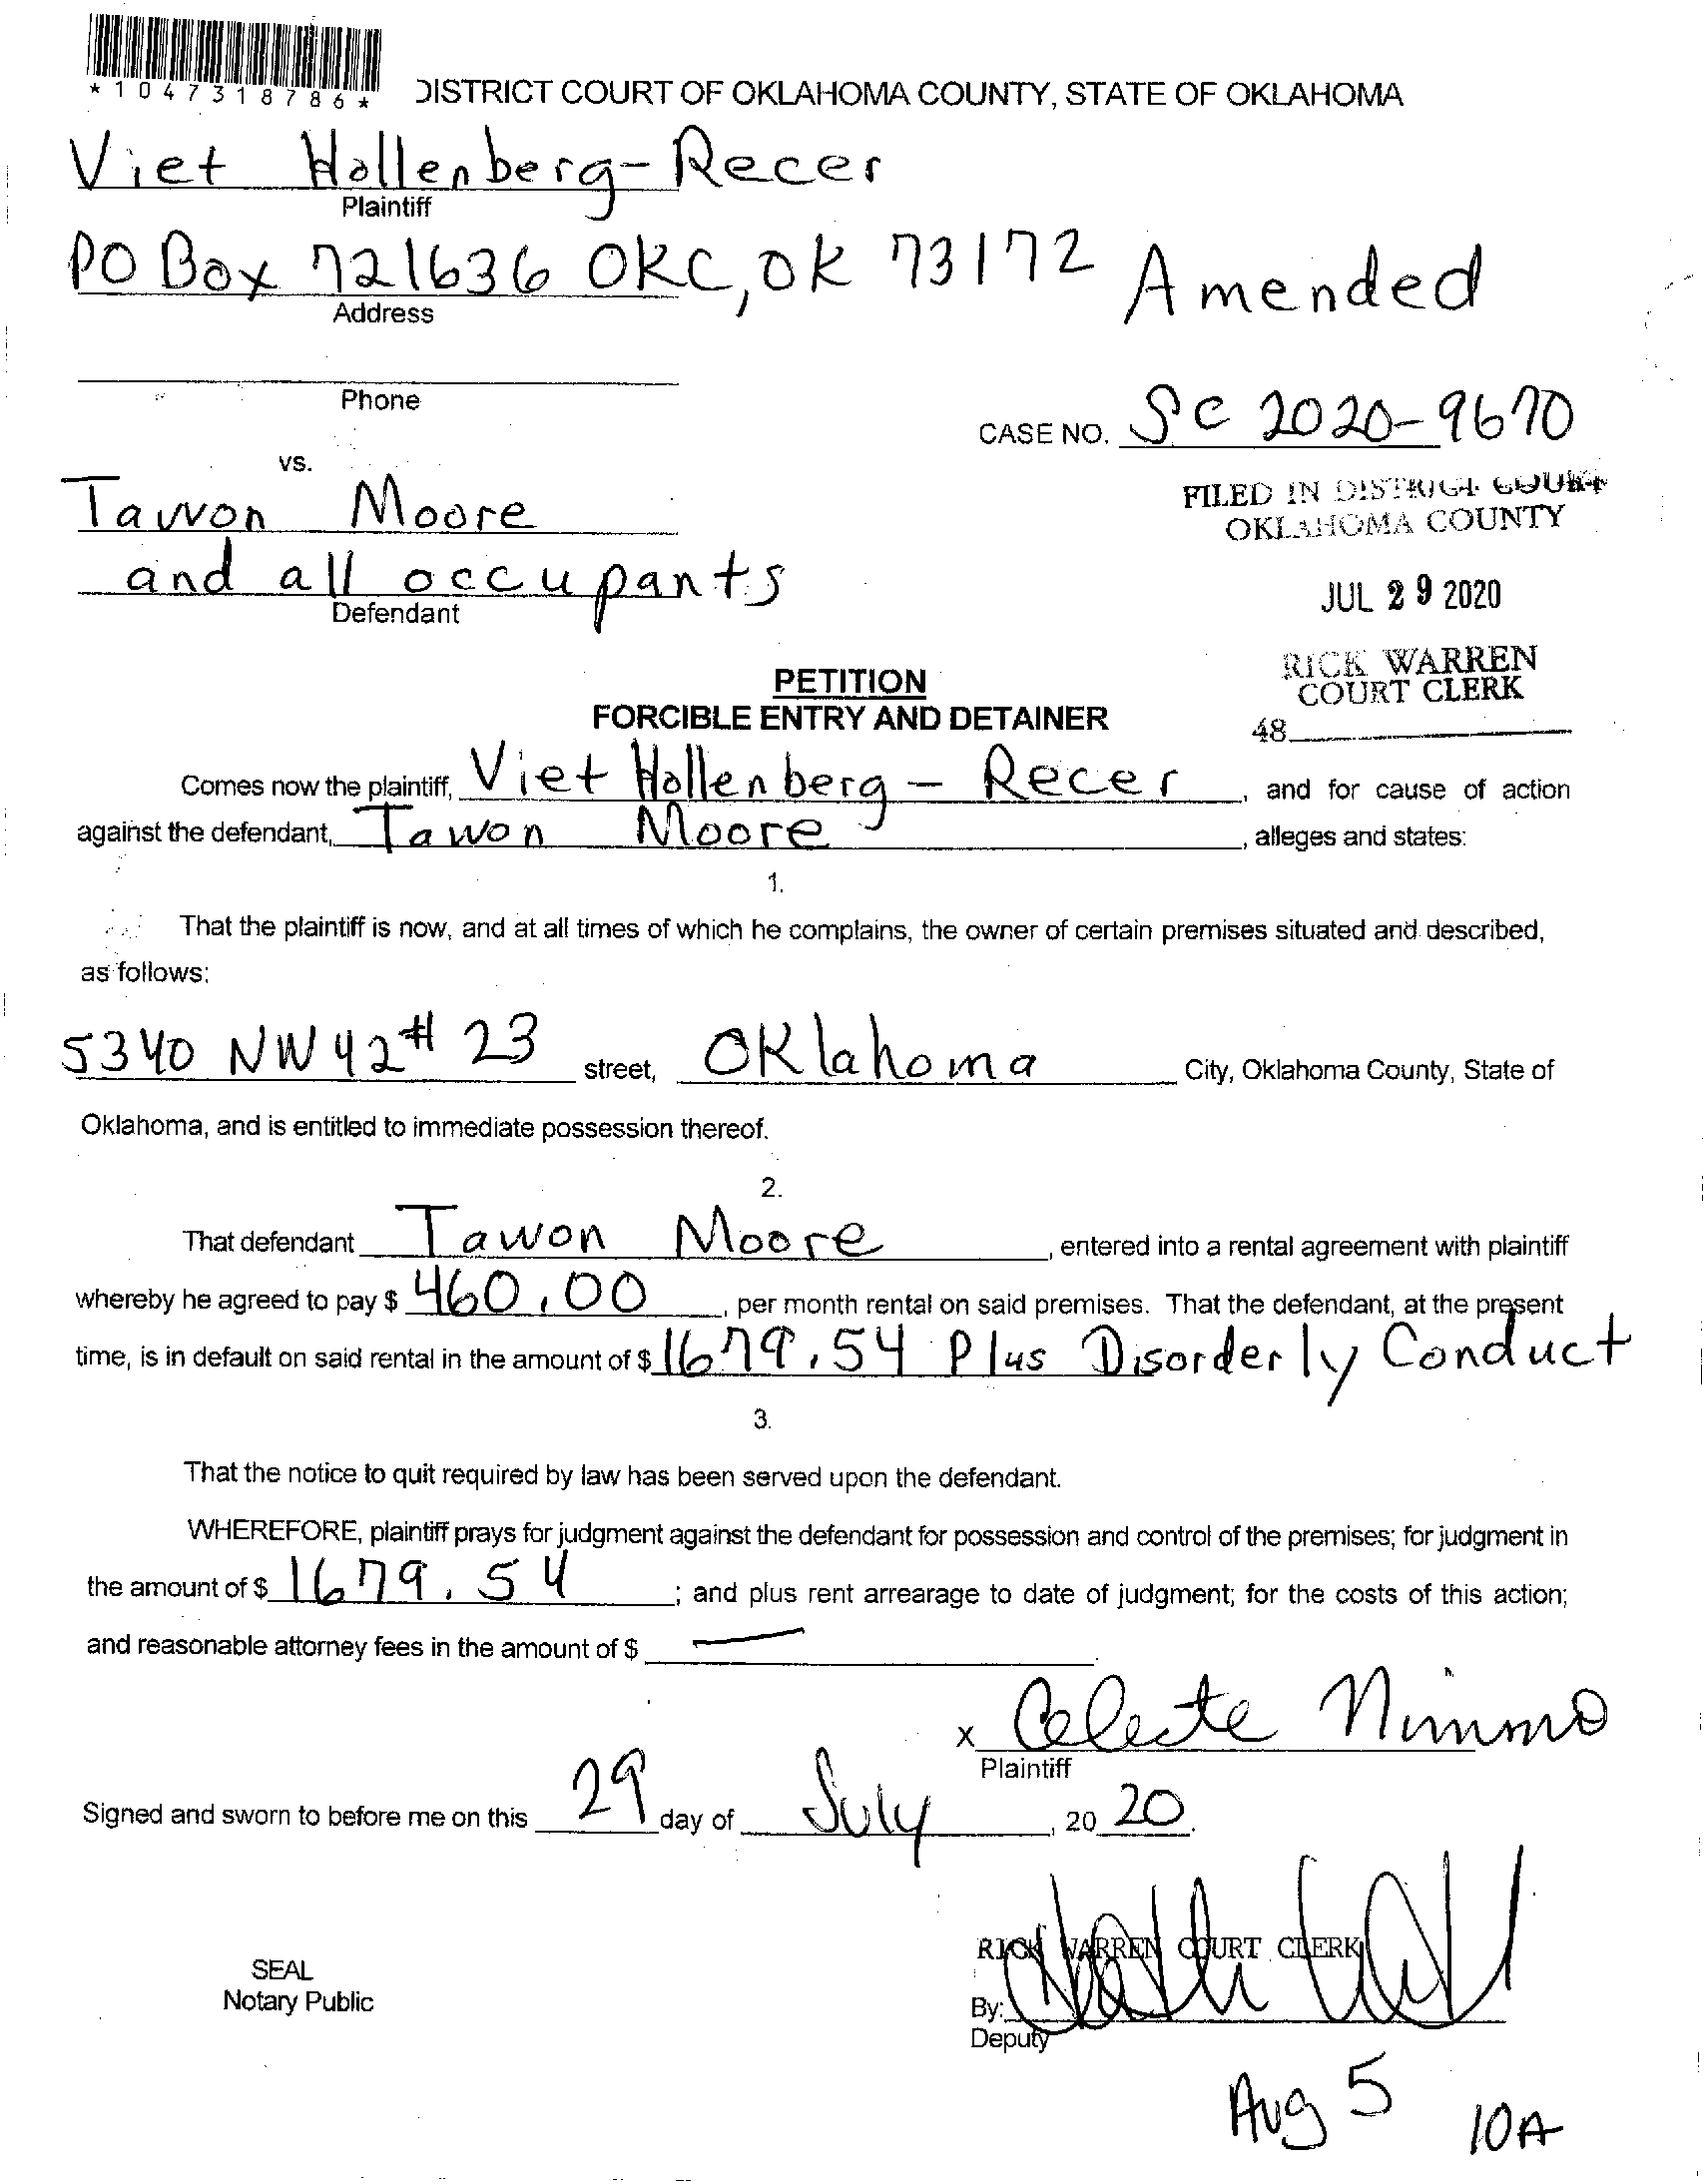 *1047318786*
DISTRICT COURT OF OKLAHOMA COUNTY, STATE OF OKLAHOMA
Viet Hollenberg-Recer
Plaintiff
PO Box 721636 OKC, OK 73172
Amended
Address
Phone
CASE NO. SC 2020-9670
vs.
FILED IN DISTRICT COURT
OKLAHOMA COUNTY
Tawon Moore
and all occupants
Defendant
JUL 29 2020
RICK WARREN
COURT CLERK
48
PETITION
FORCIBLE ENTRY AND DETAINER
Comes now the plaintiff, Viet Hollenberg - Recer, and for cause of action
against the defendant, Tawon Moore, alleges and states:
1.
That the plaintiff is now, and at all times of which he complains, the owner of certain premises situated and described,
as follows:
5340 NW 42 # 23 street, Oklahoma City, Oklahoma County, State of
Oklahoma, and is entitled to immediate possession thereof.
2.
That defendant Tawon Moore, entered into a rental agreement with plaintiff
whereby he agreed to pay $ 460.00, per month rental on said premises. That the defendant, at the present
time, is in default on said rental in the amount of $ 1679.54 Plus Disorderly Conduct
3.
That the notice to quit required by law has been served upon the defendant.
WHEREFORE, plaintiff prays for judgment against the defendant for possession and control of the premises; for judgment in
the amount of $ 1679.54; and plus rent arrearage to date of judgment; for the costs of this action;
and reasonable attorney fees in the amount of $ —.
x Celeste Nimmo
Plaintiff
Signed and sworn to before me on this 29 day of July, 20 20.
RICK WARREN COURT CLERK
SEAL
Notary Public
By:
Deputy
Aug 5 10A